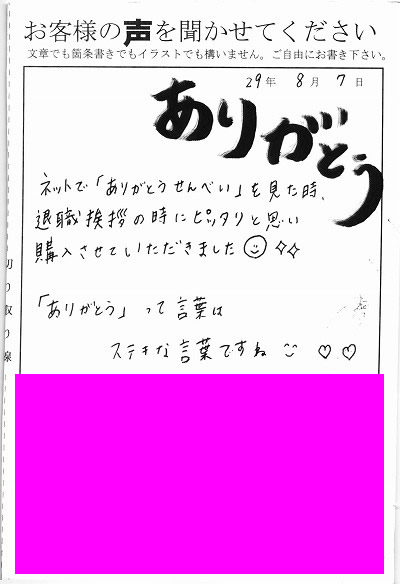 お客様の声を聞かせてください
文章でも箇条書きでもイラストでも構いません。ご自由にお書き下さい。
29年 8月 7日
ありがとう
ネットで「ありがとうせんべい」を見た時、
退職挨拶の時にピッタリと思い
購入させていただきました
「ありがとう」って言葉は
ステキな言葉ですね
切り取り線